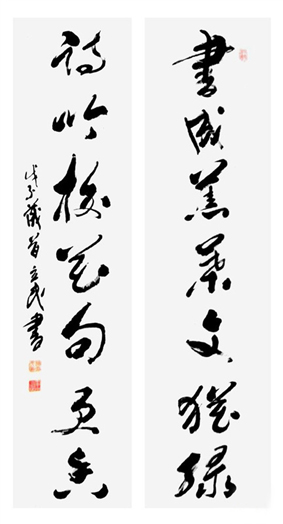 書成蕉葉文猶綠
詩吟梅花句更香
戊子歲首立民書